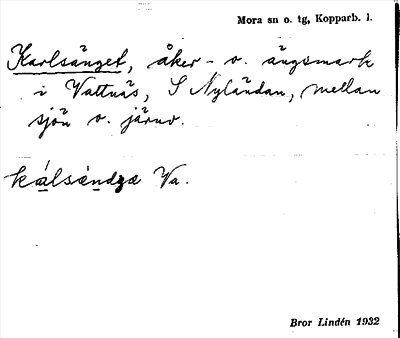 Mora sn o. tg, Kopparb. l.
Karlsänget, åker- o. ängsmark
i Vattnäs, S Nyländan, mellan
sjön o. järnv.
kálsèndgæ Va.
Bror Lindén 1932